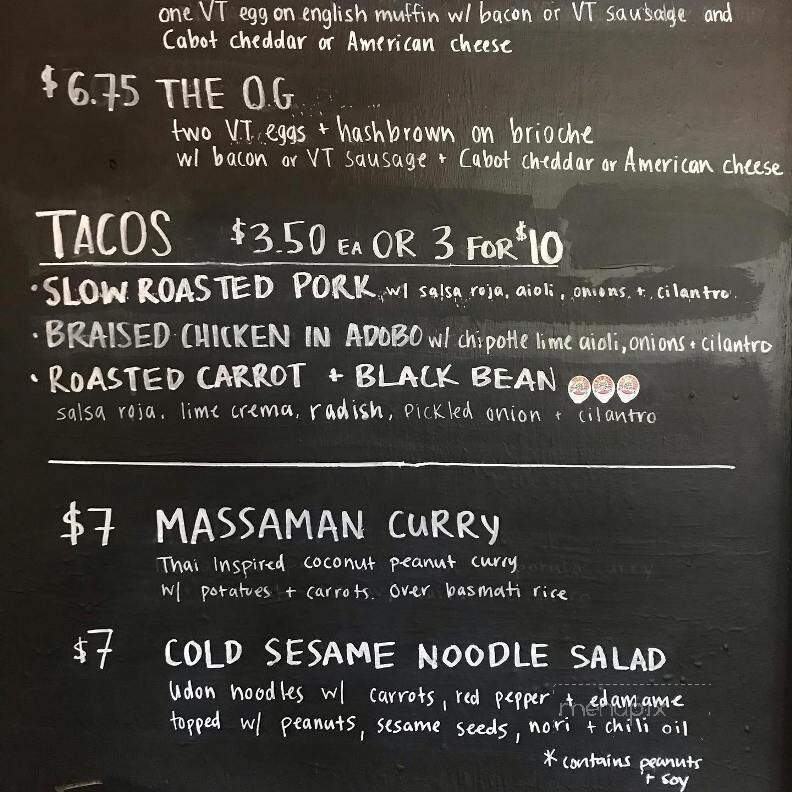 one VT egg on english muffin w/ bacon or VT sausage and
Cabot cheddar or American cheese
$6.75 THE O.G
two VT eggs + hashbrown on brioche
w/ bacon or VT sausage + Cabot cheddar or American cheese
TACOS $3.50 EA OR 3 FOR $10
·SLOW ROASTED PORK w/ salsa roja, aioli, onions, + cilantro
·BRAISED CHICKEN IN ADOBO w/ chipotle lime aioli, onions + cilantro
·ROASTED CARROT + BLACK BEAN
salsa roja, lime crema, radish, pickled onion + cilantro
$7 MASSAMAN CURRY
Thai Inspired coconut peanut curry
w/ potatoes + carrots. over basmati rice
$7 COLD SESAME NOODLE SALAD
Udon noodles w/ carrots, red pepper + edamame
menupix
topped w/ peanuts, sesame seeds, nori + chili oil
* contains peanuts
+ soy